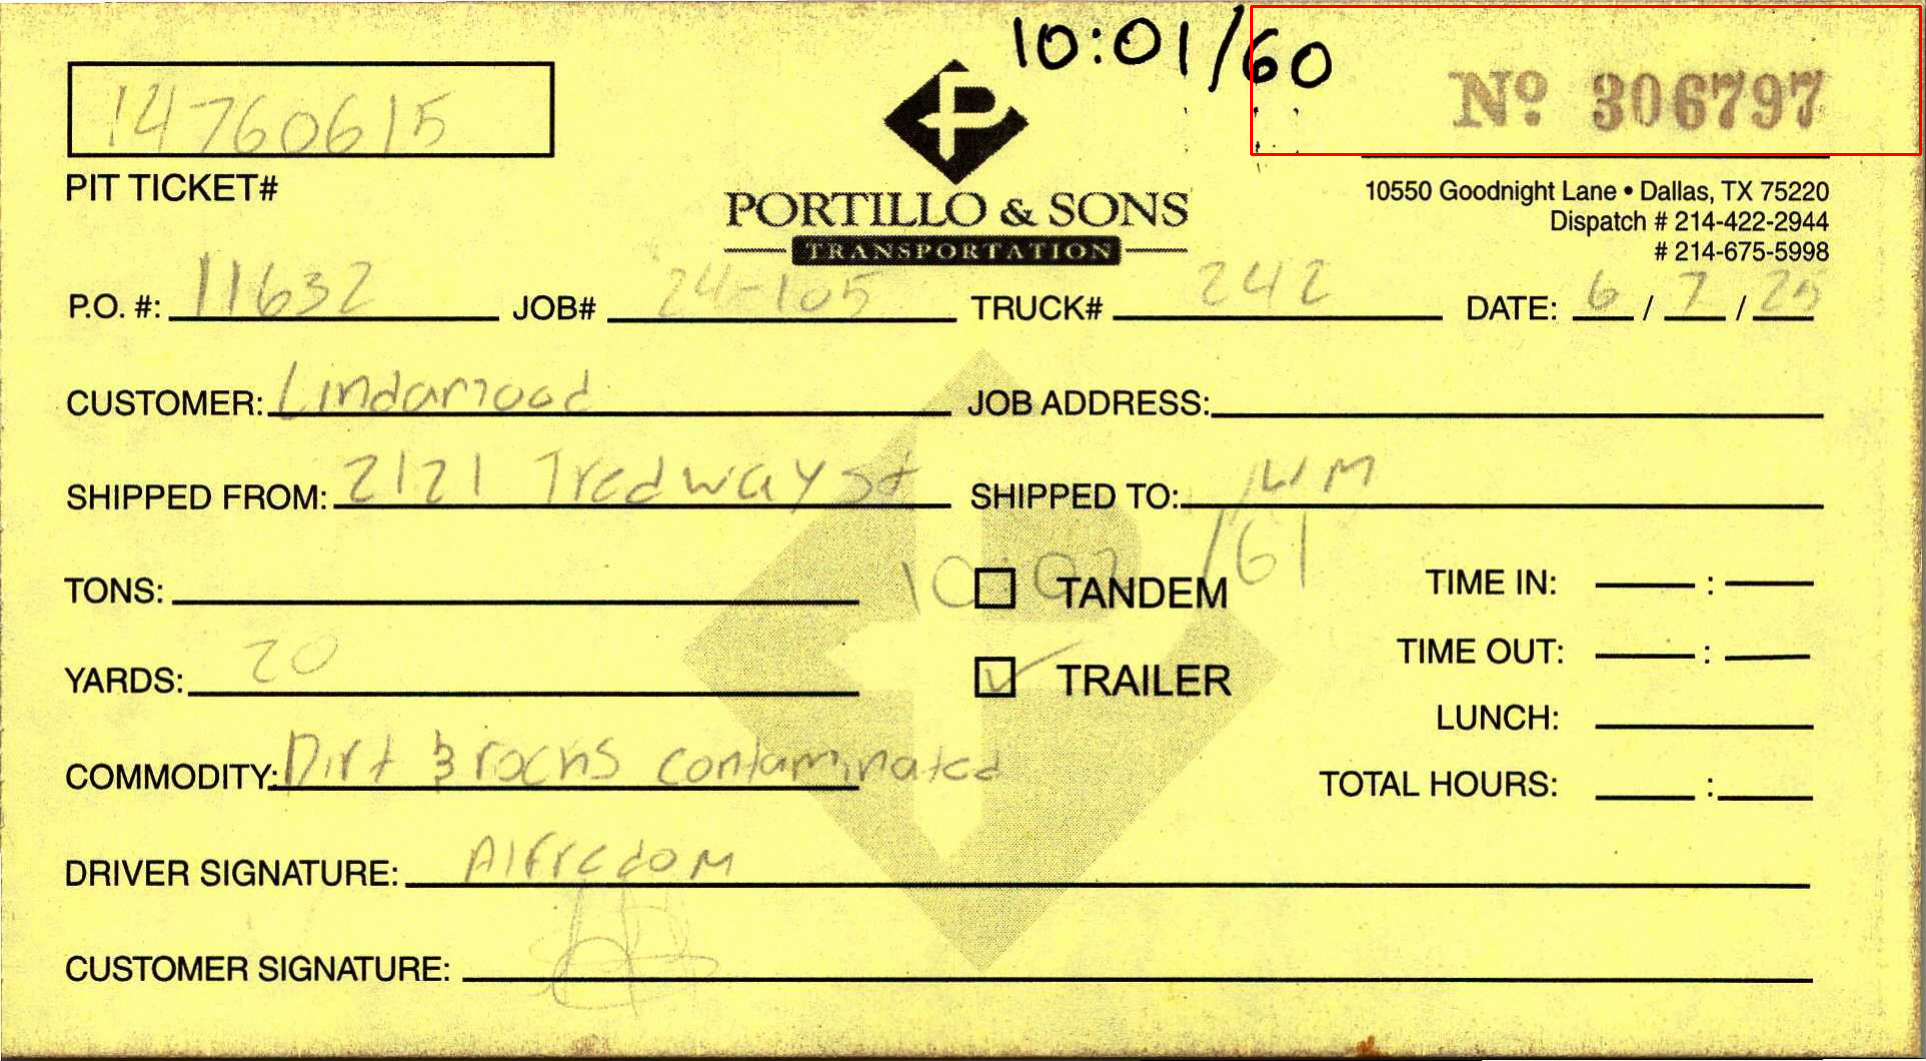 10:01/60
Nº 306797
14760615
PIT TICKET#
PORTILLO & SONS
TRANSPORTATION
10550 Goodnight Lane • Dallas, TX 75220
Dispatch # 214-422-2944
# 214-675-5998
P.O. #: 11632 JOB# 24-105 TRUCK# 242 DATE: 6 / 7 / 25
CUSTOMER: Lindamood JOB ADDRESS:
SHIPPED FROM: 2121 Tredway st SHIPPED TO: WM
10:02 /61
TONS: TANDEM TIME IN: :
TIME OUT: :
YARDS: 20 TRAILER
LUNCH:
COMMODITY: Dirt & rocks contaminated TOTAL HOURS: :
DRIVER SIGNATURE: Alfredo M
CUSTOMER SIGNATURE: